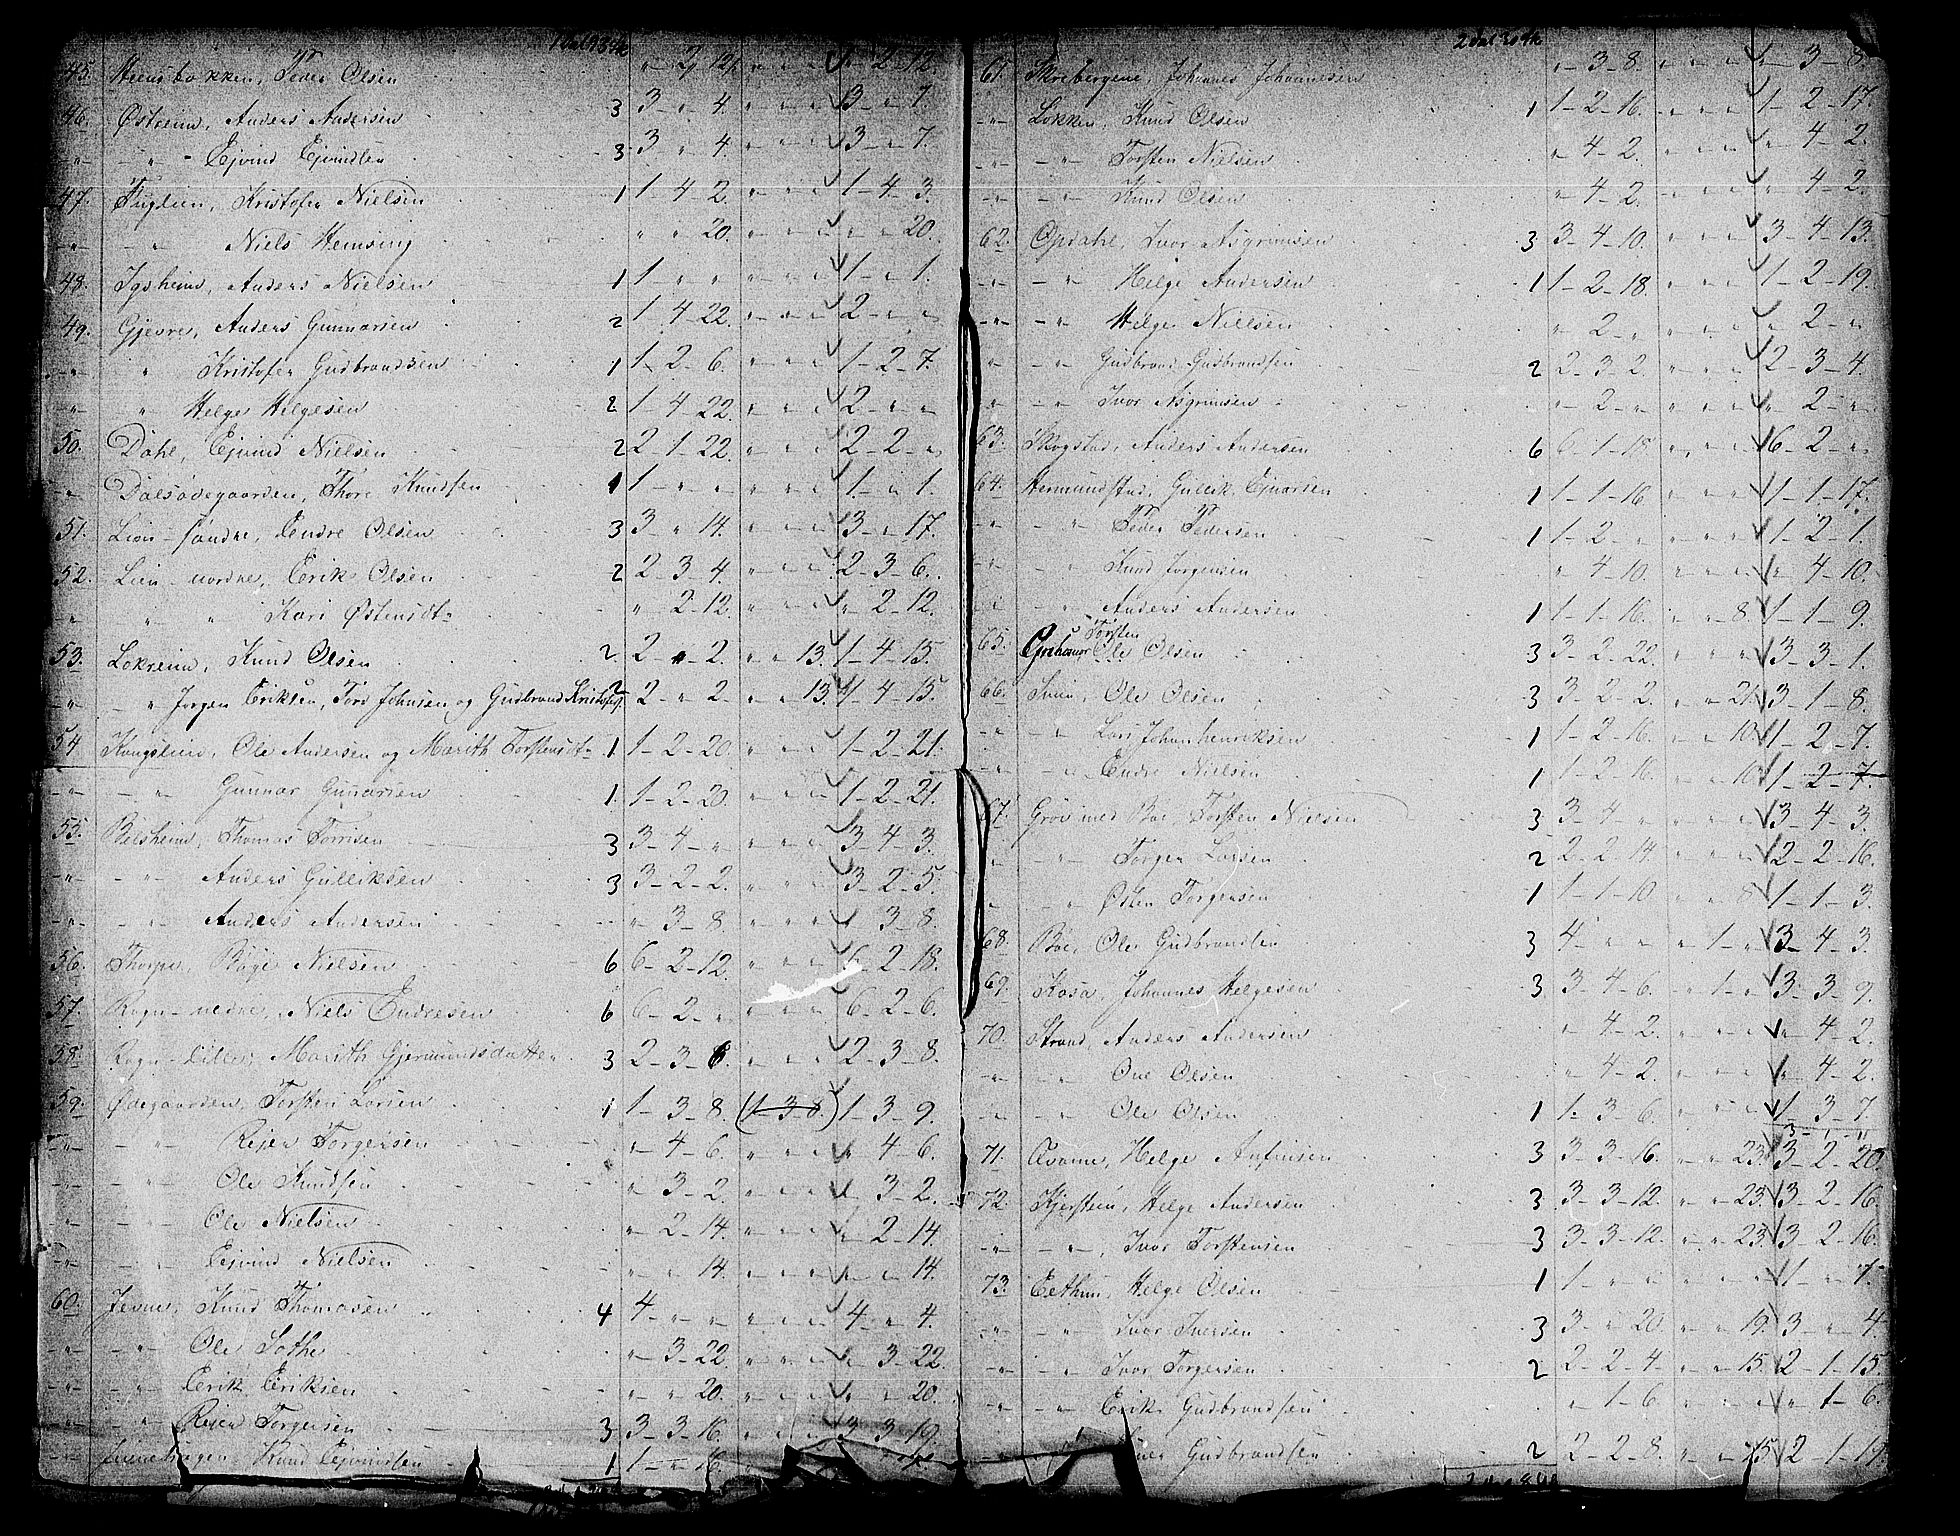 45. Steensbakken, Peder Olsen " 2 12. " " " " 2 12.
46. Østreim, Anders Andersen 3 3 " 4. " " " 3 " 7.
" " Ejvind Ejvindsen 3 3 " 4. " " " 3 " 7.
47. Fuglien, Kristofer Nielsen 1 1 4 2. " " " 1 4 3.
" " Niels Hemsing " " 20. " " " " " 20.
48. Igsheim, Anders Nielsen 1 1 " " " " " 1 " 1.
49. Gjevre, Anders Gunnarsen 2 1 4 22. " " " 2 " "
" " Kristofer Gudbrandsen 1 1 2 6. " " " 1 2 7.
" " Helge Helgesen 2 1 4 22. " " " 2 " "
50. Dahl, Ejvind Nielsen 2 2 1 22. " " " 2 2 "
" Dalsødegaarden, Thore Knudsen 1 1 " " " " " 1 " 1.
51. Lien søndre, Endre Olsen 3 3 " 14. " " " 3 " 17.
52. Lien nordre, Erik Olsen 2 2 3 4. " " " 2 3 6.
" " " Kari Østensdt. " 2 12. " " " " 2 12.
53. Lokreim, Knud Olsen 2 2 " 2. " " 13. 1 4 15.
" " Jørgen Eriksen, Tord Johnsen og Gudbrand Kristofs. 2 2 " 2 " " 13. 1 4 15.
54 Kongslien, Ole Andersen og Marith Torstensdt. 1 1 2 20. " " " 1 2 21.
" " Gunnar Gunnarsen 1. 1 2 20. " " " 1 2 21.
55. Belsheim, Thomas Torrisen 3 3 4 " " " " 3 4 3.
" " Anders Gulliksen 3 3 2 2. " " " 3 2 5.
" " Anders Andersen " 3 8. " " " " 3 8.
56. Thorpe, Boje Nielsen 6 6 2 12. " " " 6 2 18.
57. Rogn nedre, Niels Endresen 6 6 2 " " " " 6 2 6.
58. Rogn lille, Marith Gjermundsdatter 3 2 3 6. " " " 2 3 8.
59. Ødegaarden, Torsten Larsen 1 1 3 8. (1 3 8.) 1 3 9.
" " Rejer Torgersen " 4 6. " " " " 4 6.
" " Ole Knudsen " 3 2. " " " " 3 2.
" " Ole Nielsen " 2 14. " " " " 2 14.
" " Ejvind Nielsen " " 14. " " " " " 14.
60. Jevne, Knud Thomasen 4 4 " " " " " 4 " 4.
" " Ole Sothe " 3 22. " " " " 3 22.
" " Erik Eriksen " " 20. " " " " " 20.
" " Rejer Torgersen 3 3 3 16. " " " 3 3 19.
Knud Ejvindsen 1 1 " 16.
2 dal 30 sk
61. Skrebergene, Johannes Johannesen " 3 8. " " " " 3 8.
" Løkken, Knud Olsen 1 1 2 16. " " " 1 2 17.
" " Torsten Nielsen " 4 2. " " " " 4 2.
" " Knud Olsen " 4 2. " " " " 4 2.
62. Opdahl, Ivor Asgrimsen 3 3 4 10. " " " 3 4 13.
" " Helge Andersen 1 1 2 18. " " " 1 2 19.
" " Helge Nielsen " 2 " " " " " 2 "
" " Gudbrand Gudbrandsen 2 2 3 2. " " " 2 3 4.
" " Ivor Asgrimsen " 2 " " " " " 2 "
63. Skogstad, Anders Andersen 6 6 1 18. " " " 6 2 "
64. Hermundstad, Gullik Ejnarsen 1 1 1 16 " " " 1 1 17.
" " Peder Pedersen 1 1 2 " " " " 1 2 1.
" " Knud Jørgensen " 4 10. " " " " 4 10.
" " Anders Andersen 1 1 1 16. " " 8. 1 1 9.
65. Grihamar Torsten Ole Olsen 3 3 2 22. " " " 3 3 1.
66. Svien, Ole Olsen 3 3 2 2. " " 21. 3 1 8.
" " Lars Johanhenriksen 1 1 2 16. " " 10. 1 2 7.
" " Endre Nielsen 1 1 2 16. " " 10. 1 2 7.
67. Grov med Boe, Torsten Nielsen 3 3 4 " " " " 3 4 3.
" " Torger Larsen 2 2 2 14. " " " 2 2 16.
" " Østen Torgersen 1 1 1 10. " " 8 1 1 3.
68. Boe, Ole Gudbrandsen 3 4 " " " 1 " 3 4 3.
69. Kosa, Johannes Helgesen 3 3 4 6. " 1 " 3 3 9.
70. Strand, Anders Andersen " 4 2. " " " " 4 2.
" " Ole Olsen " 4 2. " " " " 4 2.
" " Ole Olsen 1 1 3 6. " " " 1 3 7.
3 " "
71. Qvame, Helge Anfinsen 3 3 3 16. " " 23. 3 2 20.
72. Kjørstein, Helge Andersen 3 3 3 12. " " 23. 3 2 16.
" " Ivor Torstensen 3 3 3 12. " " 23. 3 2 16.
73. Eethun, Helge Olsen 1 1 " " " " " 1 " 1.
" " Ivor Iversen 3 3 " 20. " " 19. 3 " 4.
" " Ivor Torgersen 2 2 2 4 " " 15. 2 1 15.
" " Erik Gudbrandsen " 1 6. " " " " 1 6.
Gudbrandsen 2 2 2 8. " " 15. 2 1 19.